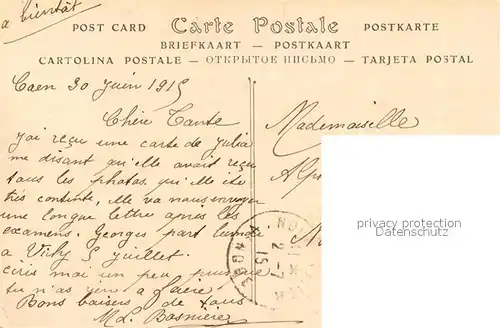 a bientôt
POST CARD Carte Postale POSTKARTE
BRIEFKAART — POSTKAART
CARTOLINA POSTALE — ОТКРЫТОЕ ПИСЬМО — TARJETA POSTAL
Caen 30 juin 1915
Chère Tante
J'ai reçu une carte de Julia
me disant qu'elle avait reçu
tous les photos qu'elle été
très contente, elle va nous envoyer
une longue lettre après les
examens. Georges part lundi
a 5 juillet.
ecris moi un peu puisque
tu n'as rien a faire
Bons baisers de tous
M L.
Mademoiselle
privacy protection
Datenschutz